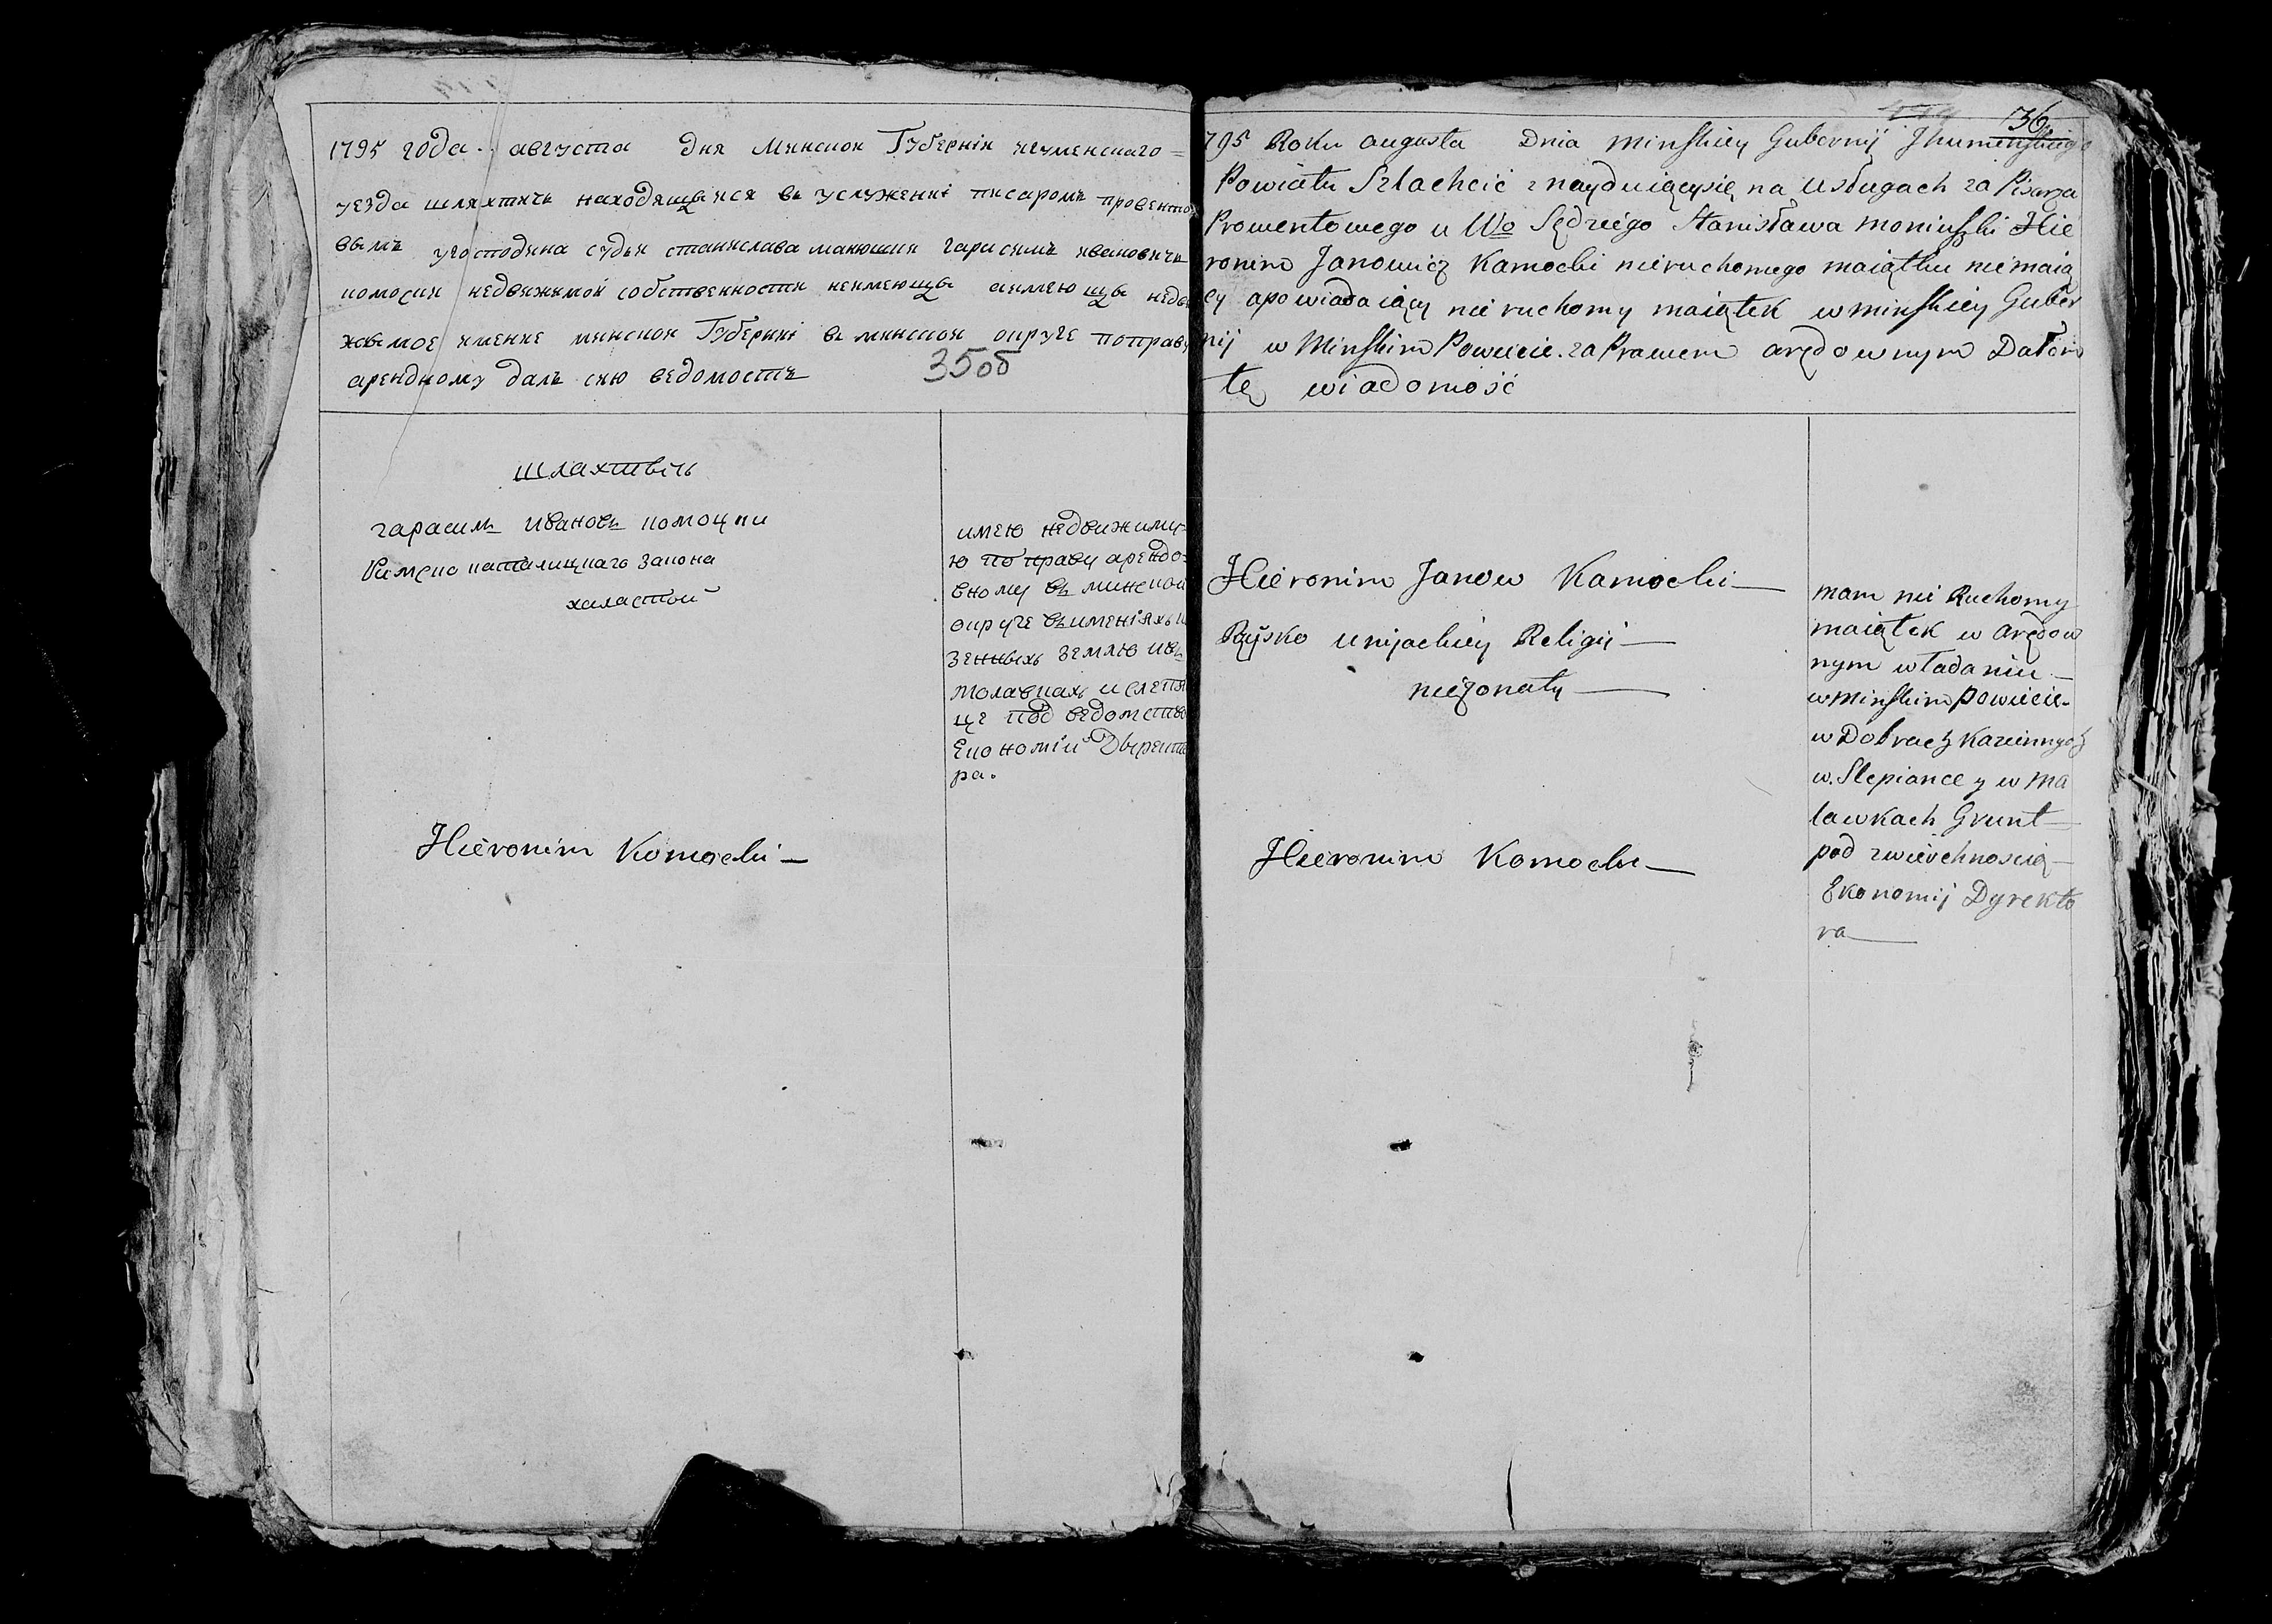 1795 года. августа дня Минскои Губерніи игуменскаго =
уезда шляхтичь находящыися въ услуженні писаромъ провенто
вымъ угосподина судьи станислава манюшки гарасимъ ивановичь
комоски недвижимой собственности неимеющы аимеющы недви
жымое имение минскои Губерниі въ минскои округе поправу
арендному далъ сию ведомость
35об
шляхтвічь
гарасимъ Ивановъ комоцки
Римско католицкаго закона
халастой
имею недвижиму-
ю по праву арендо=
вному въ минской
округе въименіяхъ к
зенныхъ землю ивъ
молавкахъ и слепя
це под ведомство
Економіи Дыректо
ра.
Hieronim Komocki
36
795 Roku augusta Dnia Minskiey Gubernij Jhumenskiego
Powiatu Szlachcić znayduiącysię na Usługach za Pisarza
Prowentowego u Wo Sędziego Stanisława moniuszki Hie
ronim Janowicz Kamocki nieruchomego maiątku niemaią
cy apowiadaiący nie ruchomy maiątek w minskiey Guber
nij w Minskim Powiecie. za Prawem arędownym Dałem
tę wiadomość
Hieronim Janow Kamocki
Rzysko unijackiey Religij
nieżonaty
Hieronim Komocki
mam nie Ruchomy
maiątek w arędow
nym władaniu
w Minskim powiecie
w Dobrach Kazionnych
w. Slepiance y w ma
ławkach Grunt
pod zwierchnoscią
Ekonomij Dyrekto
ra